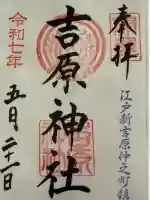 奉拝
江戸新吉原仲之町鎮
吉原神社
令和七年
五月二十一日